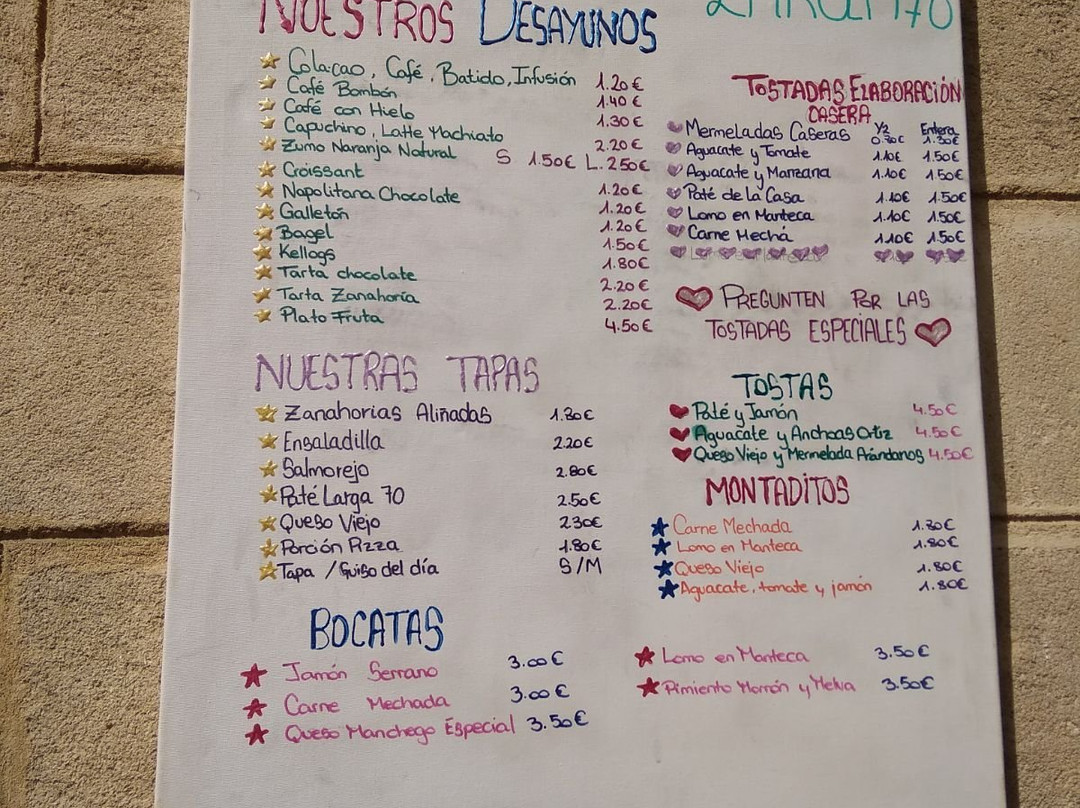 NUESTROS DESAYUNOS
Colacao, Café, Batido, Infusión 1.20€
Café Bombón 1.40€
Café con Hielo 1.30€
Capuchino, Latte Machiato 2.20€
Zumo Naranja Natural S 1.50€ L. 2.50€
Croissant 1.20€
Napolitana Chocolate 1.20€
Galletón 1.20€
Bagel 1.50€
Kellogs 1.80€
Tarta chocolate 2.20€
Tarta Zanahoria 2.20€
Plato Fruta 4.50€
NUESTRAS TAPAS
Zanahorias Aliñadas 1.80€
Ensaladilla 2.20€
Salmorejo 2.80€
Paté Larga 70 2.50€
Queso Viejo 2.30€
Porción Pizza 1.80€
Tapa / Guiso del día S/M
BOCATAS
Jamón Serrano 3.00€
Carne Mechada 3.00€
Queso Manchego Especial 3.50€
Lomo en Manteca 3.50€
Pimiento Morrón y Melva 3.50€
TOSTADAS ELABORACIÓN
CASERA
1/2 Entera
Mermeladas Caseras 1.30€
Aguacate y Tomate 1.10€ 1.50€
Aguacate y Manzana 1.10€ 1.50€
Paté de la Casa 1.10€ 1.50€
Lomo en Manteca 1.10€ 1.50€
Carne Mechá 1.10€ 1.50€
PREGUNTEN POR LAS
TOSTADAS ESPECIALES
TOSTAS
Paté y Jamón 4.50€
Aguacate y Anchoas Ortiz 4.50€
Queso Viejo y Mermelada Arándanos 4.50€
MONTADITOS
Carne Mechada 1.80€
Lomo en Manteca 1.80€
Queso Viejo 1.80€
Aguacate, tomate y jamón 1.80€